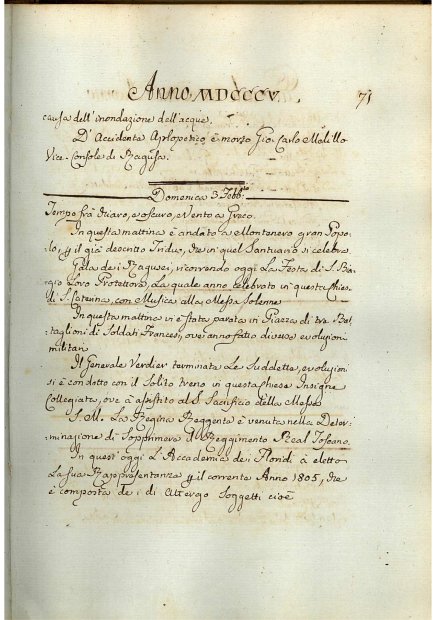 Anno MDCCCV.
71
causa dell'inondazione dell'acque.
D'Accidente Apopletico è morto Gio: Carlo
Vice-Console di Ragusa.
Domenica 3 Febb.ro
Tempo frà chiaro, e oscuro, e Vento a Greco.
In questa mattina è andato a Montenero gran Popo-
lo, p il già descritto Triduo, che in quel Santuario si celebra.
Gala dei Ragusei, ricorrendo oggi La Festa di S. Bia-
gio Loro Protettore, La quale anno celebrato in questa Chiesa
di S. Caterina, con Musica alla Messa Solenne.
In questa mattina vi è stata parata in Piazza di tre Bat-
taglioni di Soldati Francesi, ove anno fatto diverse evoluzioni
militari
Il Generale Verdier terminata Le Suddette, evoluzioni
si è condotto con il Solito treno in questa Chiesa Insigne
Collegiata, ove à assistito al S. Sacrificio della Messa
S. M. La Regina Reggente è venuta nella Deter-
minazione di Sopprimere il Reggimento Real Toscano.
In quest'oggi L'Accademia dei Floridi à eletto
La sua Rappresentanza p il corrente Anno 1805, che
è composta dei di Attergo Soggetti cioè